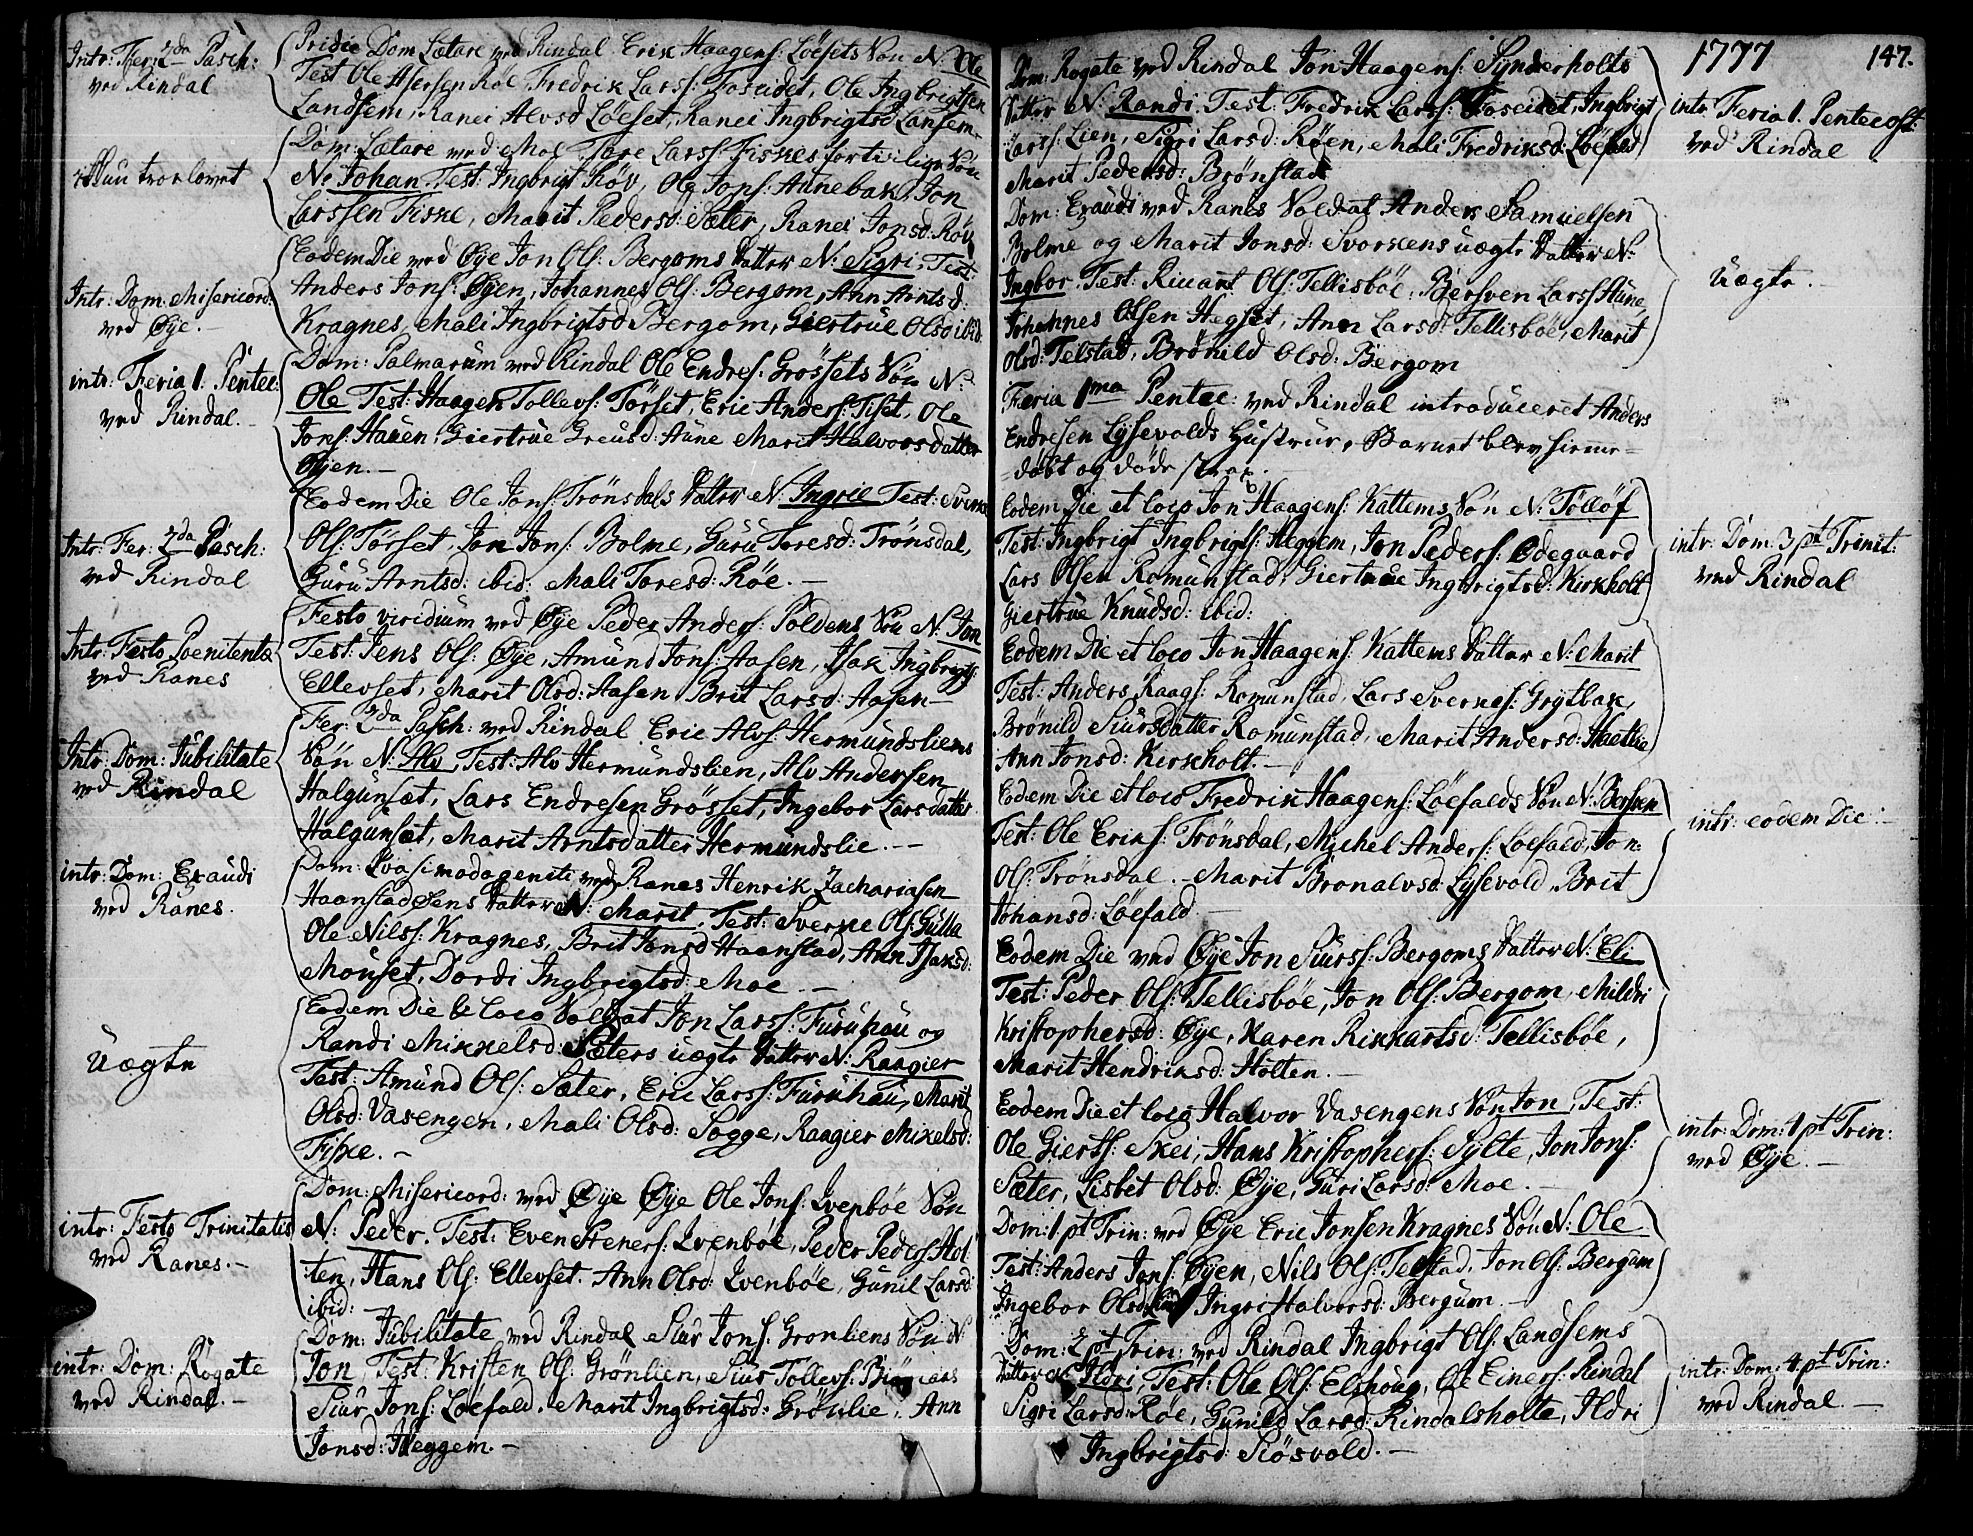 Intr: Fer: 2da Pasch:
ved Rindal
Pridie Dom Lætare ved Rindal Erik Haagens: Löesets Sön N: Ole
Test Ole Fredrik Larss: Foseidet, Ole Ingbrigtsen
Landsem, Ranei Alvsd Löeset, Ranei Ingbrigtsd Lansem-
Hun trolovet
Dom: Lætare ved Moe Tore Larss: Fiskes Sön
N: Johan. Test: Ingbrigt Röv, Ole Jons: Aunebak, Jon
Larssen Fiske, Marit Pedersd: Sæter, Ranei Jonsd: Röv
Intr: Dom: Misericord:
ved Øye.-
Eodem Die ved Øye Jon Ols: Bergoms Datter N: Sigri, Test:
Anders Jons: Øyen, Johannes Ols: Bergom, Ann Arntsd:
Kragnes, Mali Ingbrigtsd Bergom, Giertrue Olsd ibid
intr: Feria 1. Pentec:
ved Rindal.-
Dom: Palmarum ved Rindal Ole Endres: Grössets Sön N:
Ole Test: Haagen Tollevs: Törset, Eric Anders: Tiset, Ole
Jons: Hauen, Giertrue Greusd: Aune Marit Halvorsdatter
Øyen.-
Intr: Fer: 2da Pasch:
ved Rindal
Eodem Die Ole Jons: Trönsdals Datter N: Ingrie Test: Sverke
Ols: Törset, Jon Jons: Bolme, Guru Toresd: Trönsdal,
Guru Arntsd: ibid: Mali Toresd: Röe.-
Intr: Festo Poenitentæ
ved Ranes
Festo viridium ved Øye Peder Anders: Poldens Sön N: Jon
Test: Jens Ols: Øye, Amund Jons: Aasen, Isak Ingbrigts:
Ellevset, Marit Olsd: Aasen Brit Larsd: Aasen-
Intr: Dom: Jubilate
ved Rindal
Fer: 2da Pasch: ved Rindal Eric Alvs: Hermundsliens
Sön N: Alv, Test: Alv Hermundslien, Alv Andersen
Halgunset, Lars Endresen Grösset, Ingebor Larsdatter
Halgunsæt, Marit Arntsdatter Hermundslie.-
intr: Dom: Exaudi
ved Ranes.
Dom: Qvasimodogeniti ved Ranes Henrik Zachariasen
Haanstadøens Datter N: Marit, Test: Sverke Ols: Gulla
Ole Nilss: Kragnes, Brit Jonsd Haanstad, Ann Isaksd:
Mouset, Dordi Ingbrigtsd: Moe.-
Uægte
Eodem Die & loco Soldat Jon Larss: Furuhau og
Randi Mikkelsd: Sæters uægte Datter N: Raagier
Test: Amund Ols: Sæter, Eric Larss: Furuhau, Marit
Olsd: Vasengen, Mali Olsd: Sogge, Raagier Mikelsd:
Fiske.-
intr: Festo Trinitatis
ved Ranes.-
Dom: Misericord: ved Øye Øye Ole Jons: Qvenböe Sön
N: Peder. Test: Even Steners: Qvenböe, Peder Peders: Hol
ten, Hans Ols: Ellevset. Ann Olsd: Qvenböe, Gunil Larsd:
ibid:
intr: Dom: Rogate
ved Rindal.-
Dom: Jubilitate ved Rindal Siur Jons: Gronliens Sön N:
Jon, Test: Kristen Ols: Grönlien, Siur Tollevs:
Siur Jons: Löefald, Marit Ingbrigtsd: Grönlie, Ann
Jonsd: Heggem.-
1777
147.
Dom: Rogate ved Rindal Jon Haagens: Synderholts
Datter N: Randi, Test: Fredrik Larss: Foseidet, Ingbrigt
Larss: Lien, Sigri Larsd: Röen, Mali Fredriksd: Löefald
Marit Pedersd: Brönstad
intr: Feria 1. Pentecost:
ved Rindal
Dom: Exaudi ved Ranes Soldat Anders Samuelsen
Bolme og Marit Jonsd: Svorkens uægte Datter N:
Ingbor, Test: Ols: Tellisböe, Bersven Larss Aune,
Johannes Olsen Hegset, Ann Larsd: Tellisböe, Marit
Olsd: Telstad, Brönild Olsd: Bergom
Uægte.-
Feria 1ma Pentec: ved Rindal introduceret Anders
Endresen Lysevolds Hustrue, Barnet blev hieme-
-döbt og döde strax.
Eodem Die et loco Jon Haagens: Kattems Sön N: Tollöf
Test: Ingbrigt Ingbrigts: Heggem, Jon Peders: Ødegaard
Lars Olsen Romunstad, Giertrue Ingbrigtsd: Kirkholt
Giertrue Knudsd: ibid:
intr: Dom: 3 pt Trinit:
ved Rindal
Eodem Die et loco Jon Haagens: Kattems Datter N: Marit
Test: Anders Raags: Romunstad, Lars Svernes: Grytbak,
Brönild Siursdatter Romunstad, Marit Andersd:
Ann Jonsd: Kerkholt.-
Eodem Die et loco Fredrik Haagens: Löefalds Sön N: Bersven
Test: Ole Eriks: Trönsdal, Michel Anders: Loefald, Jon
Ols: Trönsdal.- Marit Bronalvsd: Lysevold, Brit
Johansd: Löefald
intr: eodem Die.-
Eodem Die ved Øye Jon Siurs: Bergoms Datter N: Eli
Test: Peder Ols: Tellisböe, Jon Ols: Bergom, Mildri
Kristophersd: Øye, Karen Rikkartsd: Tellisböe,
Marit Hendriksd: Holten.-
Eodem Die et loco Halvor Vasengens Sön Jon, Test:
Ole Gierss: Skei, Hans Kristophers: Sylte, Jon Jons:
Sæter, Lisbet Olsd: Øye, Guri Larsd: Moe.-
intr: Dom: 1 pt Trin:
ved Øye.-
Dom: 1 pt Trin: ved Øye Eric Jonsen Kragnes Sön N: Ole
Test: Anders Jons: Øyen, Nils Ols: Telstad, Jon Ols: Bergum
Ingebor Olsd: Ingri Halvorsd: Bergum.-
Dom: 2 pt Trin: ved Rindal Ingbrigt Ols: Landsems
Datter N: Ildri, Test: Ole Ols: Elshoug, Ole Einers: Rindal
Sigri Larsd: Röe, Gunild Larsd: Rindalsholte, Ildri
Ingbrigtsd: Siösvold.-
intr: Dom: 4 pt Trin:
ved Rindal.-